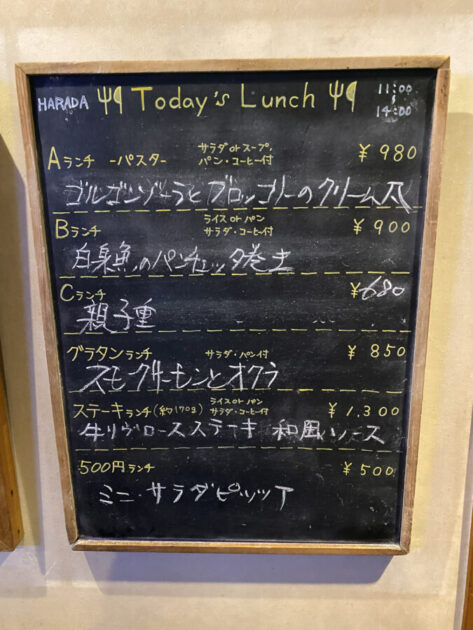 HARADA Today's Lunch 11:00 〜 14:00
Aランチ -パスタ- サラダorスープ ¥980
パン・コーヒー付
ゴルゴンゾーラとブロッコリーのクリーム
Bランチ ライスorパン ¥900
サラダ・コーヒー付
白身魚のパンチェッタ巻き
Cランチ ¥680
親子重
グラタンランチ サラダ・パン付 ¥850
スモークサーモンとオクラ
ステーキランチ(約170g) ライスorパン ¥1,300
サラダ・コーヒー付
牛リヴロースステーキ 和風ソース
500円ランチ ¥500
ミニ・サラダピッツァ